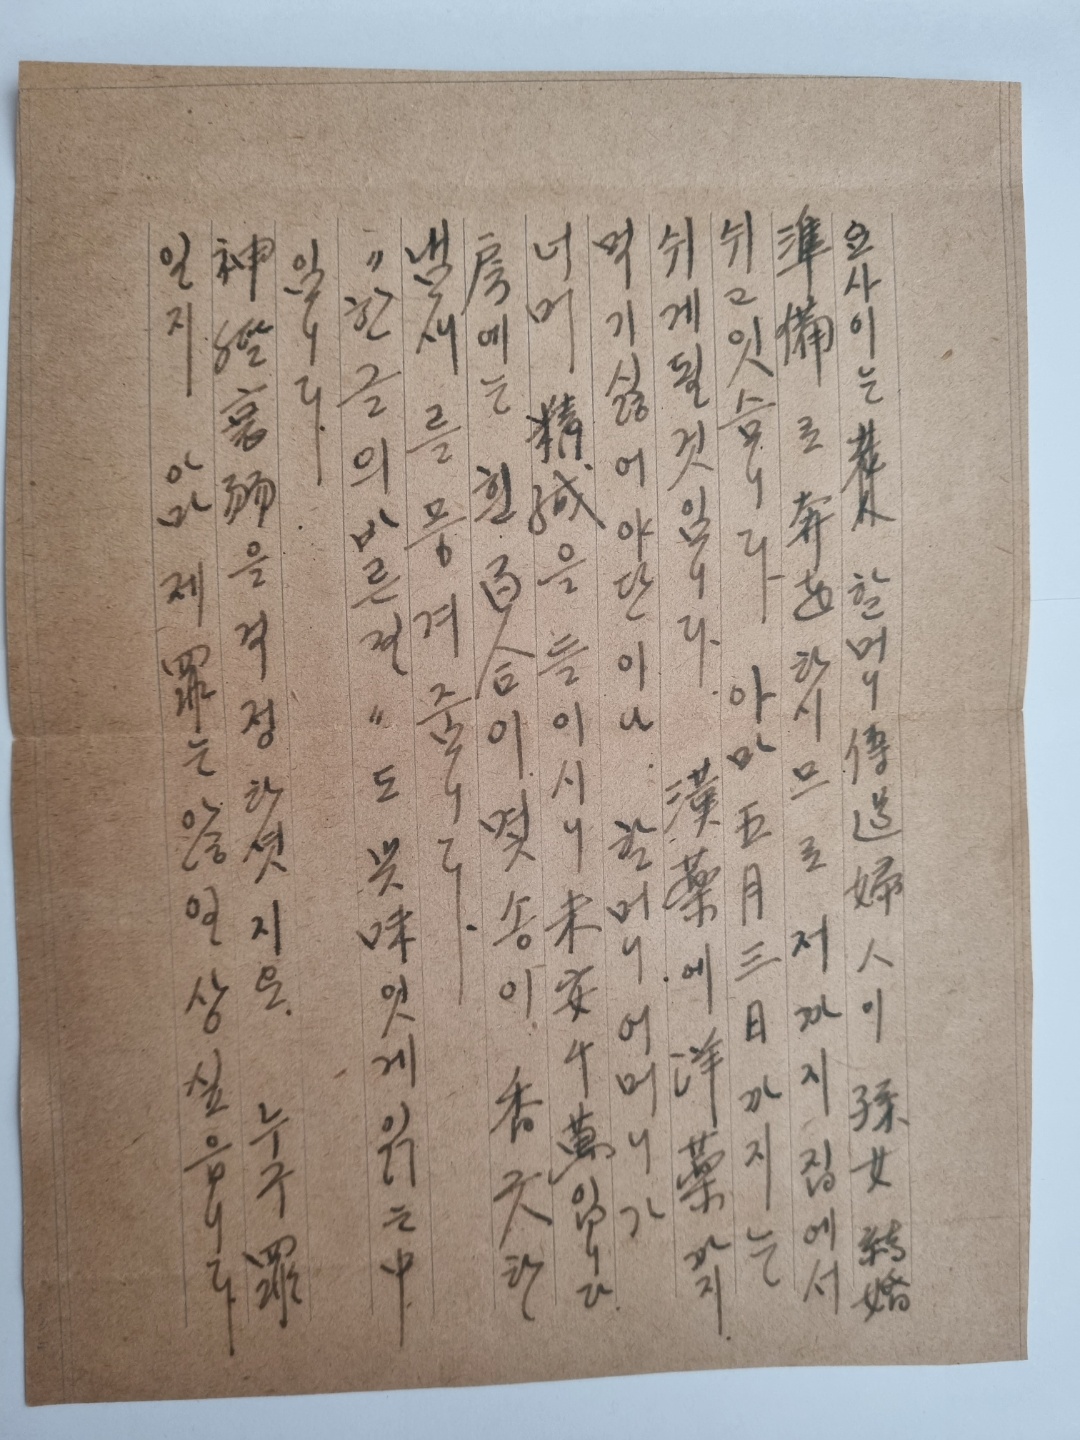 요사이는 할머니 傳道婦人이 孫女 結婚
準備로 奔走하시므로 저까지 집에서
쉬고잇습니다 아마 五月三日까지는
쉬게될것임니다. 漢藥에 洋藥까지
먹기싫어야단이나 할머니 어머니가
너머 精誠을 들이시니 未安千萬입니다
房에는 흰百合이 몇송이 香긋한
냄새를 풍겨줍니다.
"한글의 바른길" 도 興味잇게 읽는中
임니다.
神經衰弱을 걱정하셧지오. 누구 罪
일지 아마 제罪는 않인상 싶읍니다